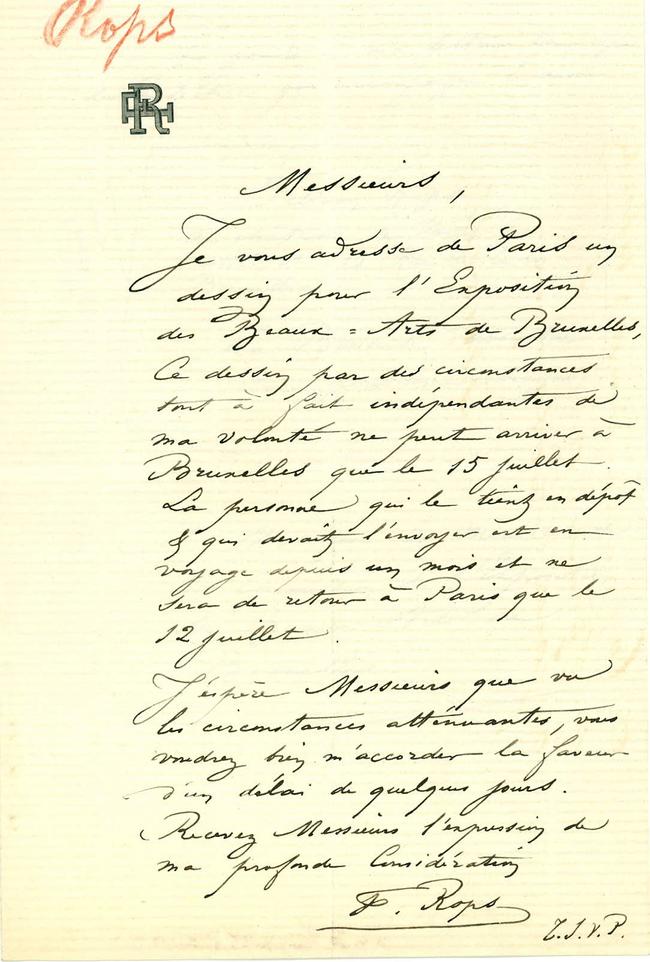 Rops
FR
Messieurs,
Je vous adresse de Paris un
dessin pour l'Exposition
des Beaux=Arts de Bruxelles,
Ce dessin par des circonstances
tout à fait indépendantes de
ma volonté ne peut arriver à
Bruxelles que le 15 juillet.
La personne qui le tient en dépôt
& qui devait l'envoyer est en
voyage depuis un mois et ne
sera de retour à Paris que le
12 juillet.
J'espère Messieurs que vu
les circonstances atténuantes, vous
voudrez bien m'accorder la faveur
d'un délai de quelques jours.
Recevez Messieurs l'expression de
ma profonde Considération
F. Rops
T.S.V.P.